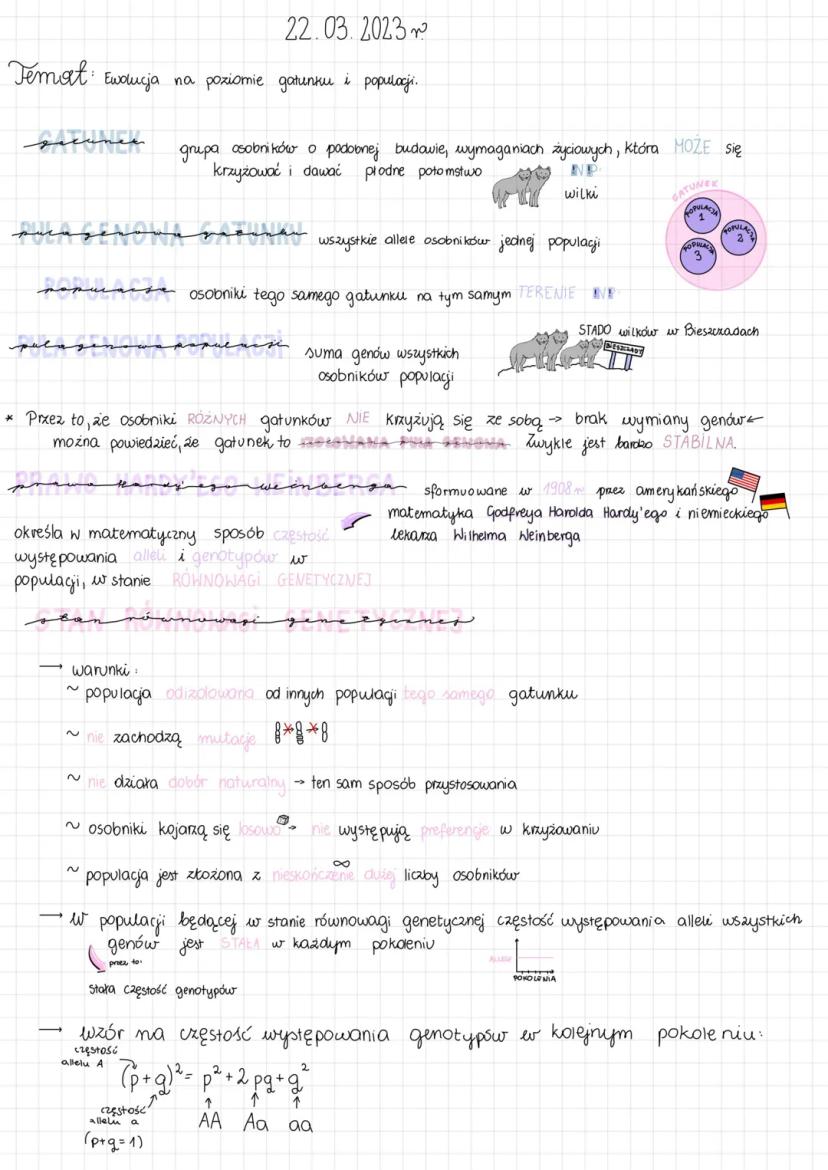 22.03.2023r
Temat: Ewolucja na poziomie gatunku i populacji.
GATUNEK
gatunek
grupa osobników o podobnej budowie, wymaganiach życiowych, która MOŻE się
krzyżować i dawać płodne potomstwo NP.
wilki
GATUNEK
POPULACJA 1
POPULACJA 2
POPULACJA 3
PULA GENOWA GATUNKU
pula genowa gatunku
wszystkie allele osobników jednej populacji
POPULACJA
populacja
osobniki tego samego gatunku na tym samym TERENIE NP.
STADO wilków w Bieszczadach
BIESZCZADY
PULA GENOWA POPULACJI
pula genowa populacji
suma genów wszystkich
osobników populacji
* Przez to, że osobniki RÓŻNYCH gatunków NIE krzyżują się ze sobą → brak wymiany genów ←
można powiedzieć, że gatunek to IZOLOWANA PULA GENOWA Zwykle jest bardzo STABILNA.
PRAWO HARDY'EGO WEINBERGA
prawo Hardy'ego Weinberga
sformuowane w 1908r przez amerykańskiego
matematyka Godfreya Harolda Hardy'ego i niemieckiego
lekarza Wilhelma Weinberga
określa w matematyczny sposób częstość
występowania alleli i genotypów w
populacji, w stanie RÓWNOWAGI GENETYCZNEJ
STAN RÓWNOWAGI GENETYCZNEJ
stan równowagi genetycznej
→ warunki:
~ populacja odizolowana od innych populacji tego samego gatunku
~ nie zachodzą mutacje
~ nie działa dobór naturalny → ten sam sposób przystosowania
~ osobniki kojarzą się losowo → nie występują preferencje w krzyżowaniu
∞
~ populacja jest złożona z nieskończenie dużej liczby osobników
→ W populacji będącej w stanie równowagi genetycznej częstość występowania alleli wszystkich
genów jest STAŁA w każdym pokoleniu
przez to:
ALLELE
POKOLENIA
stała częstość genotypów
→ wzór na częstość występowania genotypów w kolejnym pokoleniu:
częstość
allelu A
(p+q)² = p² + 2pq + q²
częstość
allelu a
AA Aa aa
(p+q=1)